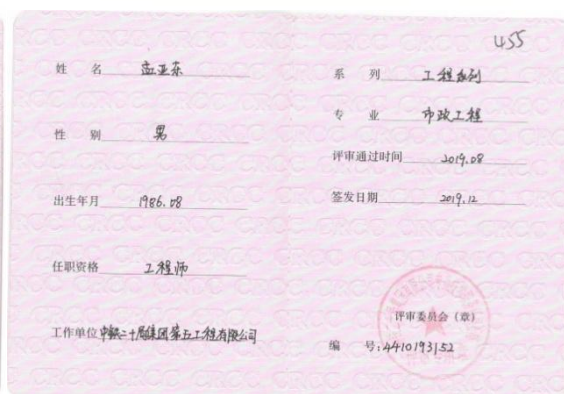 455
姓 名 孟亚东
性 别 男
出生年月 1986.08
任职资格 工程师
工作单位 中铁二十局集团第五工程有限公司
系 列 工程系列
专 业 市政工程
评审通过时间 2019.08
签发日期 2019.12
评审委员会（章）
编 号：4410193152